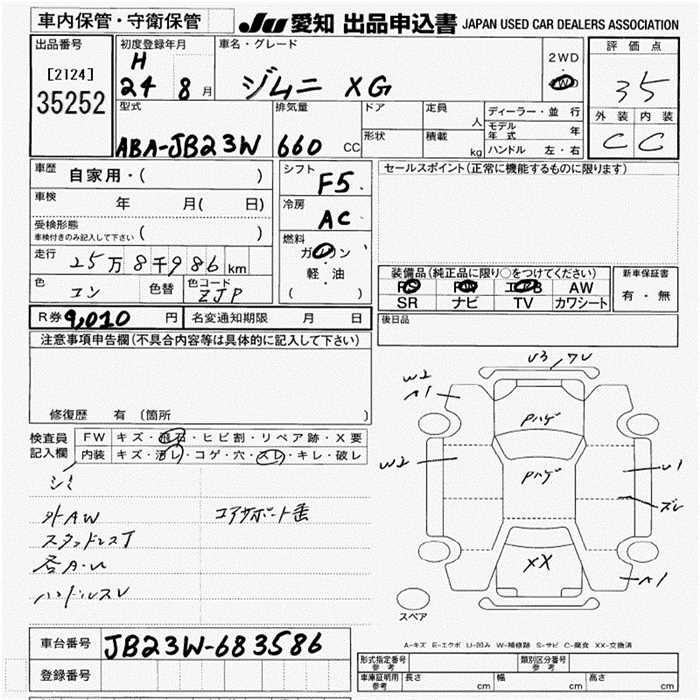 車内保管・守衛保管
JU 愛知 出品申込書 JAPAN USED CAR DEALERS ASSOCIATION
出品番号
[2124]
35252
初度登録年月
H
24 8 月
車名・グレード
ジムニ XG
2WD
4WD
評価点
35
外装 内装
C C
型式
ABA-JB23W
排気量
660 CC
ドア
形状
定員 人
積載 kg
ディーラー・並行
モデル年式 年
ハンドル 左・右
車歴 自家用・( )
車検 年 月( 日)
受検形態
車検付きのみ記入して下さい ( )
走行 25万8千986km
色 コン 色替
色コード ZJP
シフト F5
冷房 AC
燃料
ガソリン
軽・油
( )
セールスポイント(正常に機能するものに限ります)
装備品(純正品に限り○をつけてください)
PS PW エアB AW
SR ナビ TV カワシート
新車保証書
有・無
R券 9,010 円 名変通知期限 月 日
後日品
注意事項申告欄(不具合内容等は具体的に記入して下さい)
修復歴 有 〔箇所 〕
検査員記入欄
FW キズ・飛石・ヒビ割・リペア跡・X要
内装 キズ・汚レ・コゲ・穴・スレ・キレ・破レ
シミ
外AW
エアサポート歪
スタッドレスT
ハンドルスレ
U3
W2
A1
Pハゲ
W2
Pハゲ
U1
ズレ
XX
A1
スペア
A-キズ E-エクボ U-凹み W-補修跡 S-サビ C-腐食 XX-交換済
車台番号 JB23W-683586
登録番号
形式指定番号 参考
類別区分番号 参考
車庫証明用 参考
長さ cm 幅 cm 高さ cm